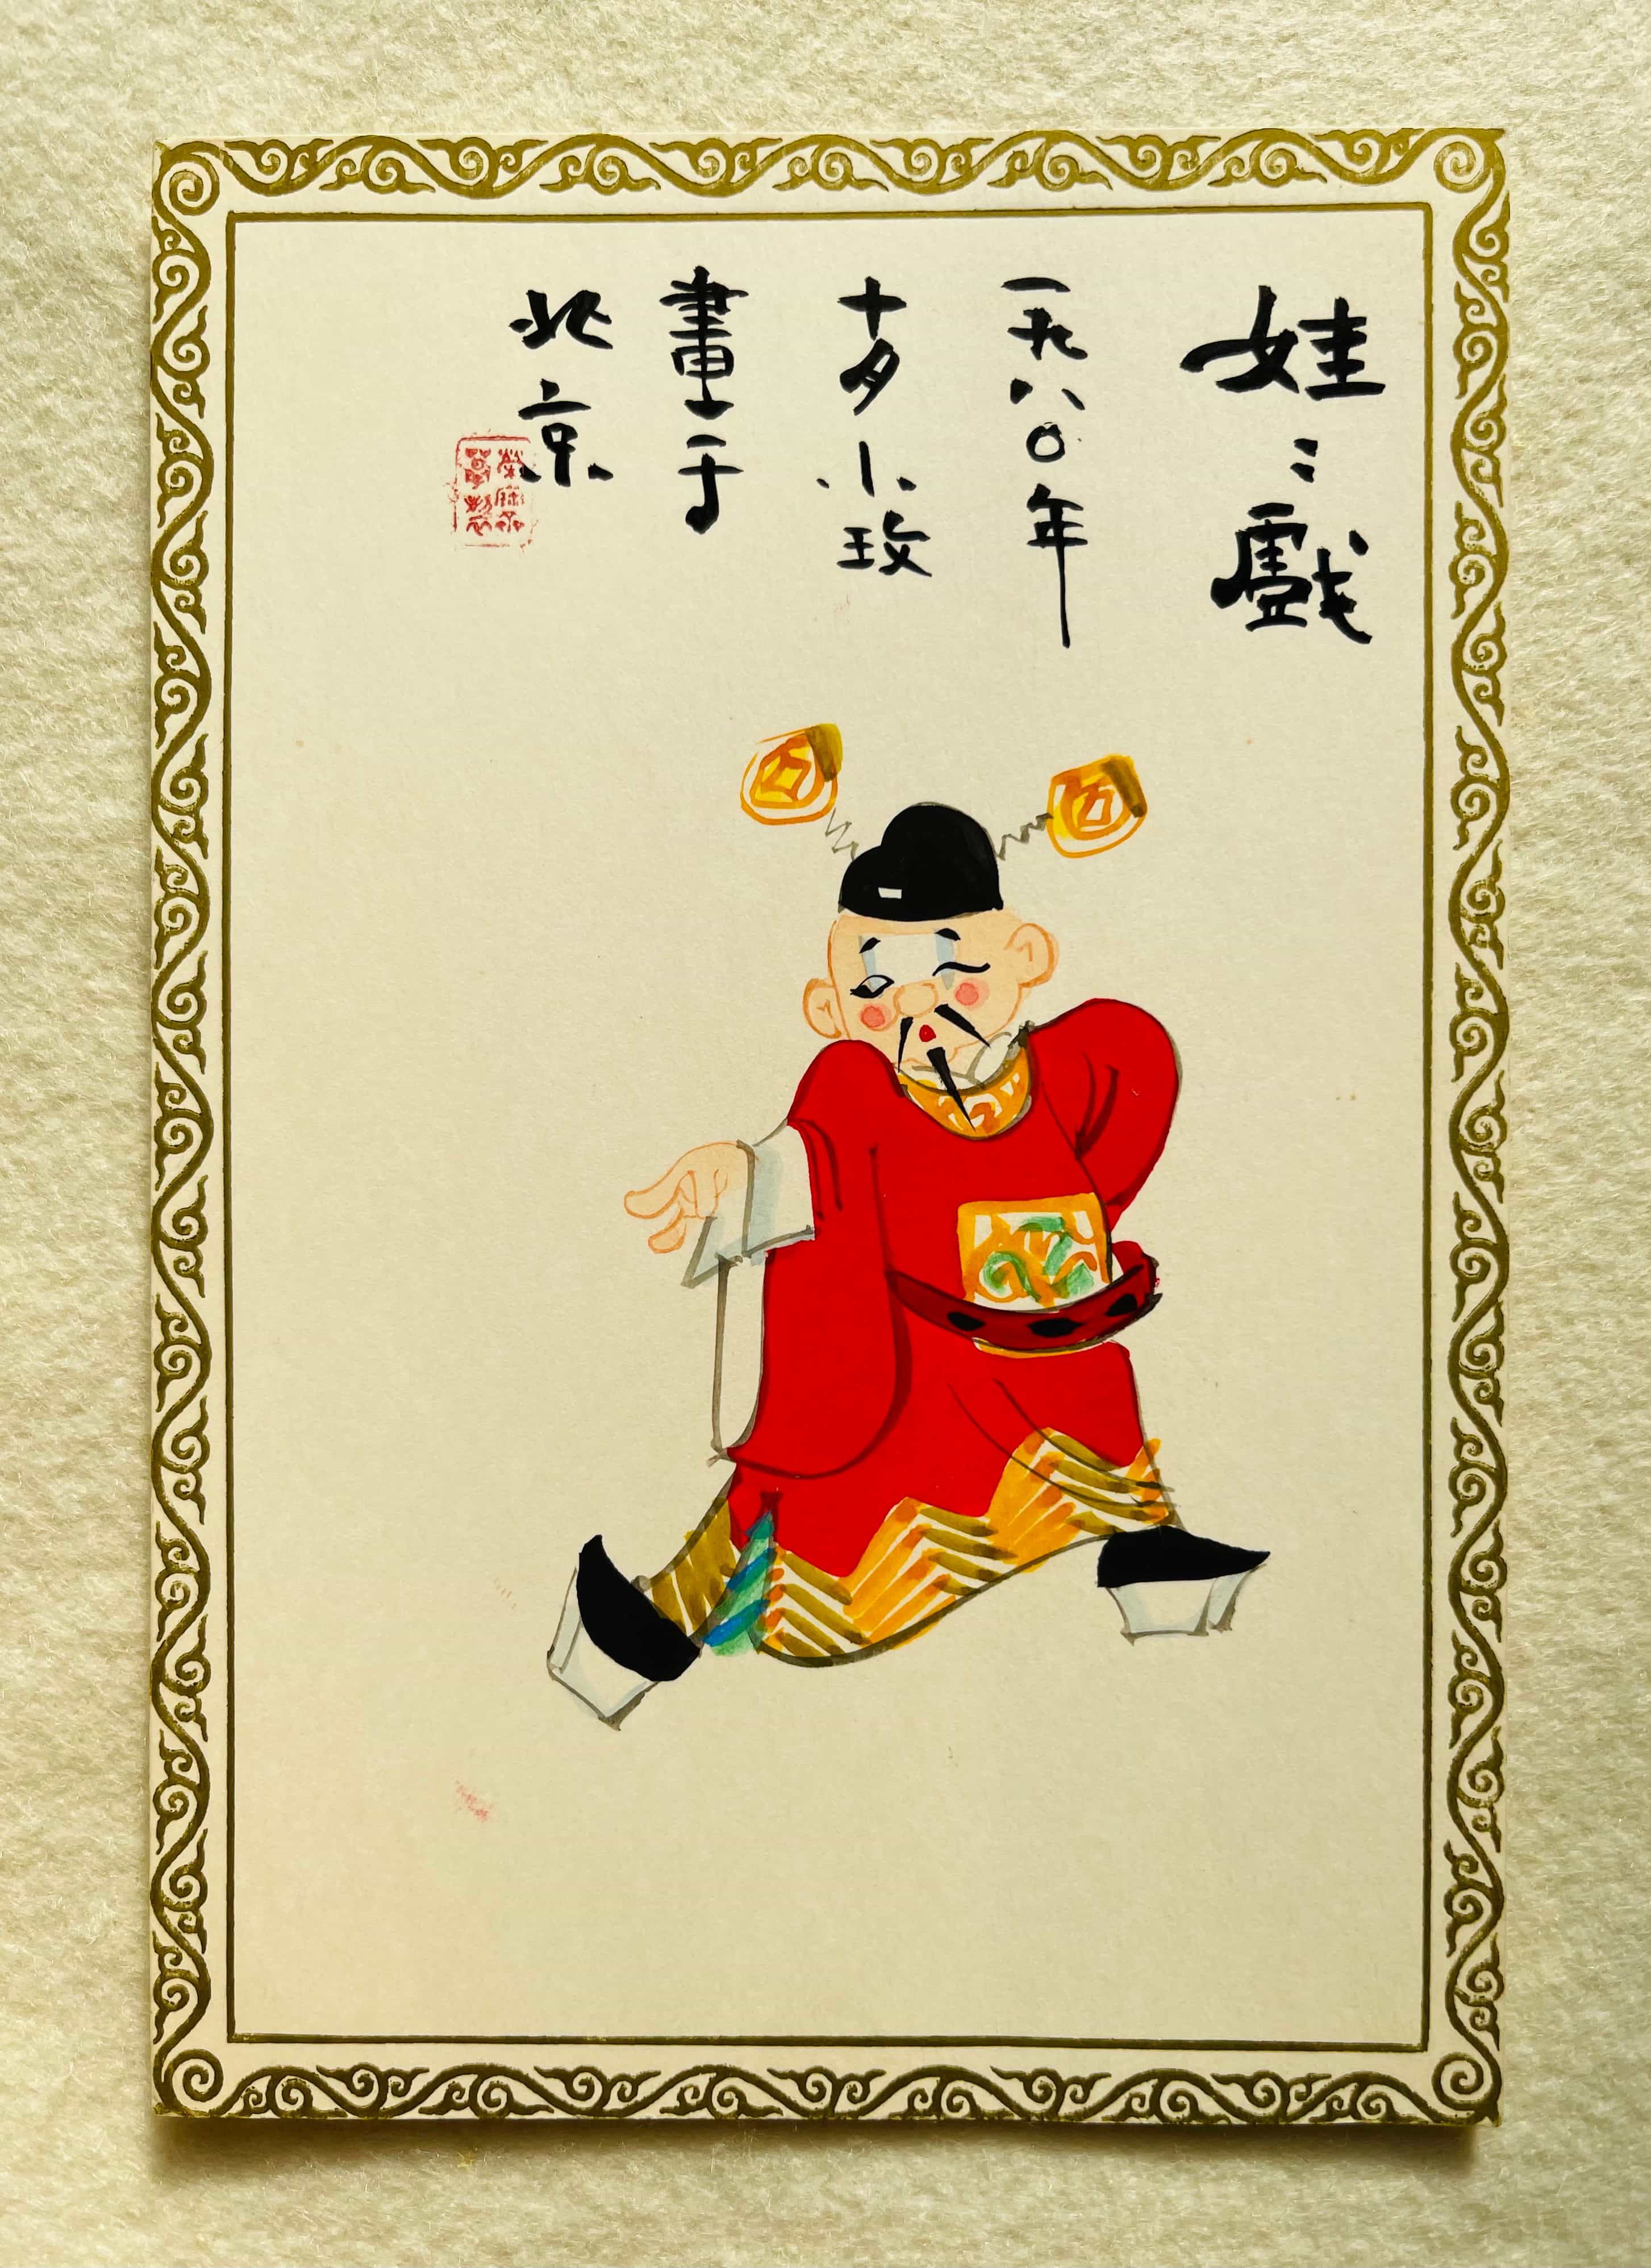 娃〻戲
一九八〇年
十月小玫
畫于
北京